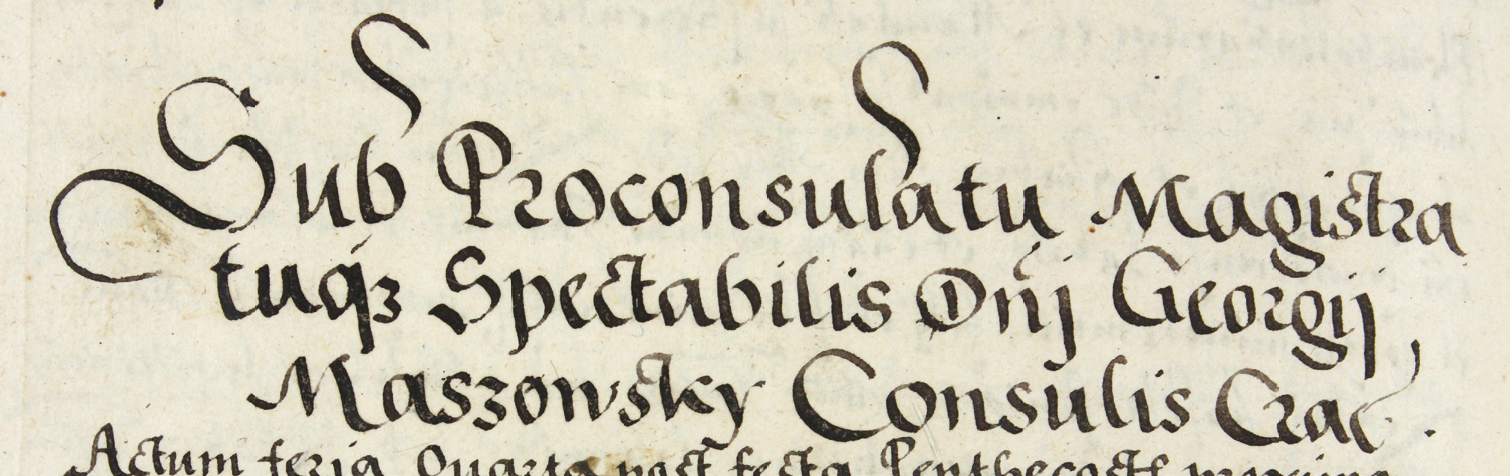 Sub Proconsulatu Magistra
tuq₃ Spectabilis Dnj Georgij
Maszowsky Consulis Crac.
Actum feria Quarta post festa Penthecostes proxima